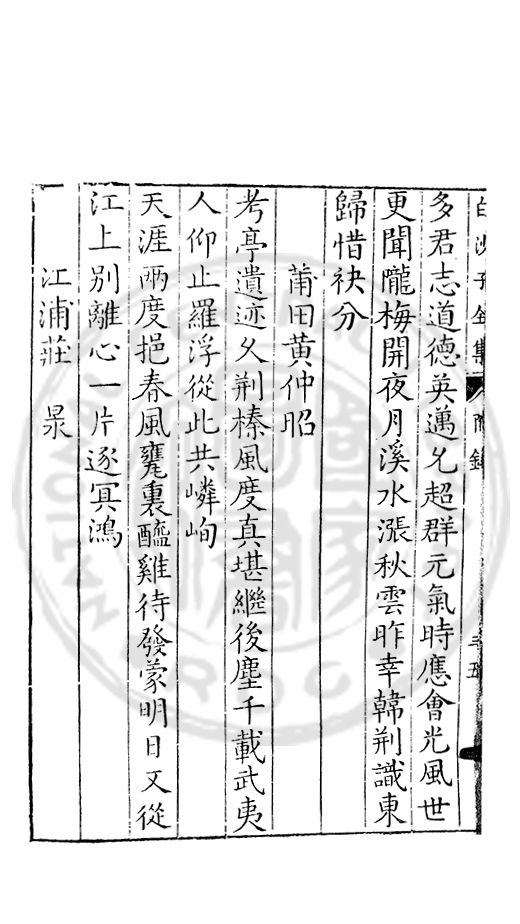 白沙子全集 附錄
多君志道德英邁乆超群元氣時應會光風世
更聞隴梅開夜月溪水漲秋雲昨幸韓荆識東
歸惜袂分
莆田黄仲昭
考亭遺迹乆荆榛風度真堪繼後塵千載武夷
人仰止羅浮從此共嶙峋
天涯兩度挹春風甕裏醯雞待發蒙明日又從
江上别離心一片逐冥鴻
江浦莊㫤